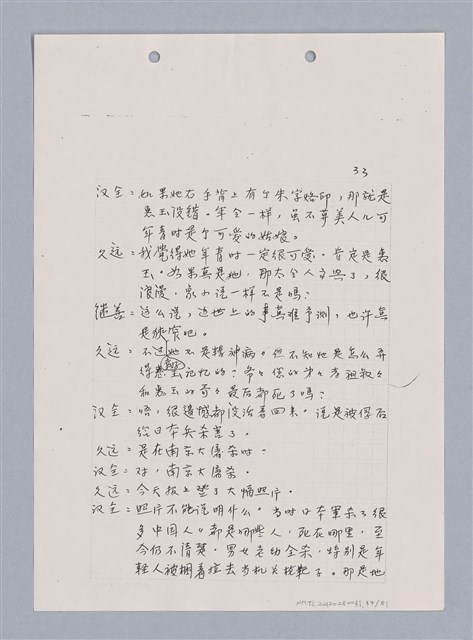 33
汉全：如果她右手背上有个朱字烙印，那就是
惠玉没错。年全一样，虽不算美人儿可
年青时是个可爱的姑娘。
久远：我觉得她年青时一定很可爱。肯定是惠
玉。如果真是她，那太令人高兴了，很
浪漫，象小说一样不是吗？
继善：这么说，这世上的事真难予测，也许真
是
久远：不过她不是精神病。但不知她是怎么弄
得 记忆的？爷々您的弟々当祖叔々
和惠玉的哥々最后都死了吗？
汉全：唔，很遗憾都没活着回来。说是被俘后
给日本兵杀害了。
久远：是在南京大屠杀时？
汉全：对，南京大屠杀。
久远：今天报上登了大幅照片。
汉全：照片不能说明什么。当时日本軍杀了很
多中国人。都是哪些人，死在哪里，至
今仍不清楚。男女老幼全杀，特别是年
轻人被捆着拉去当机关枪靶子。那是地